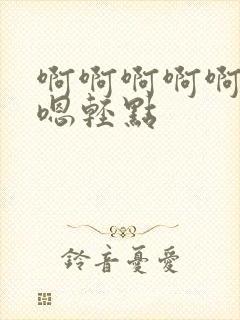 啊啊啊啊啊
嗯輕點
鈴音憂愛